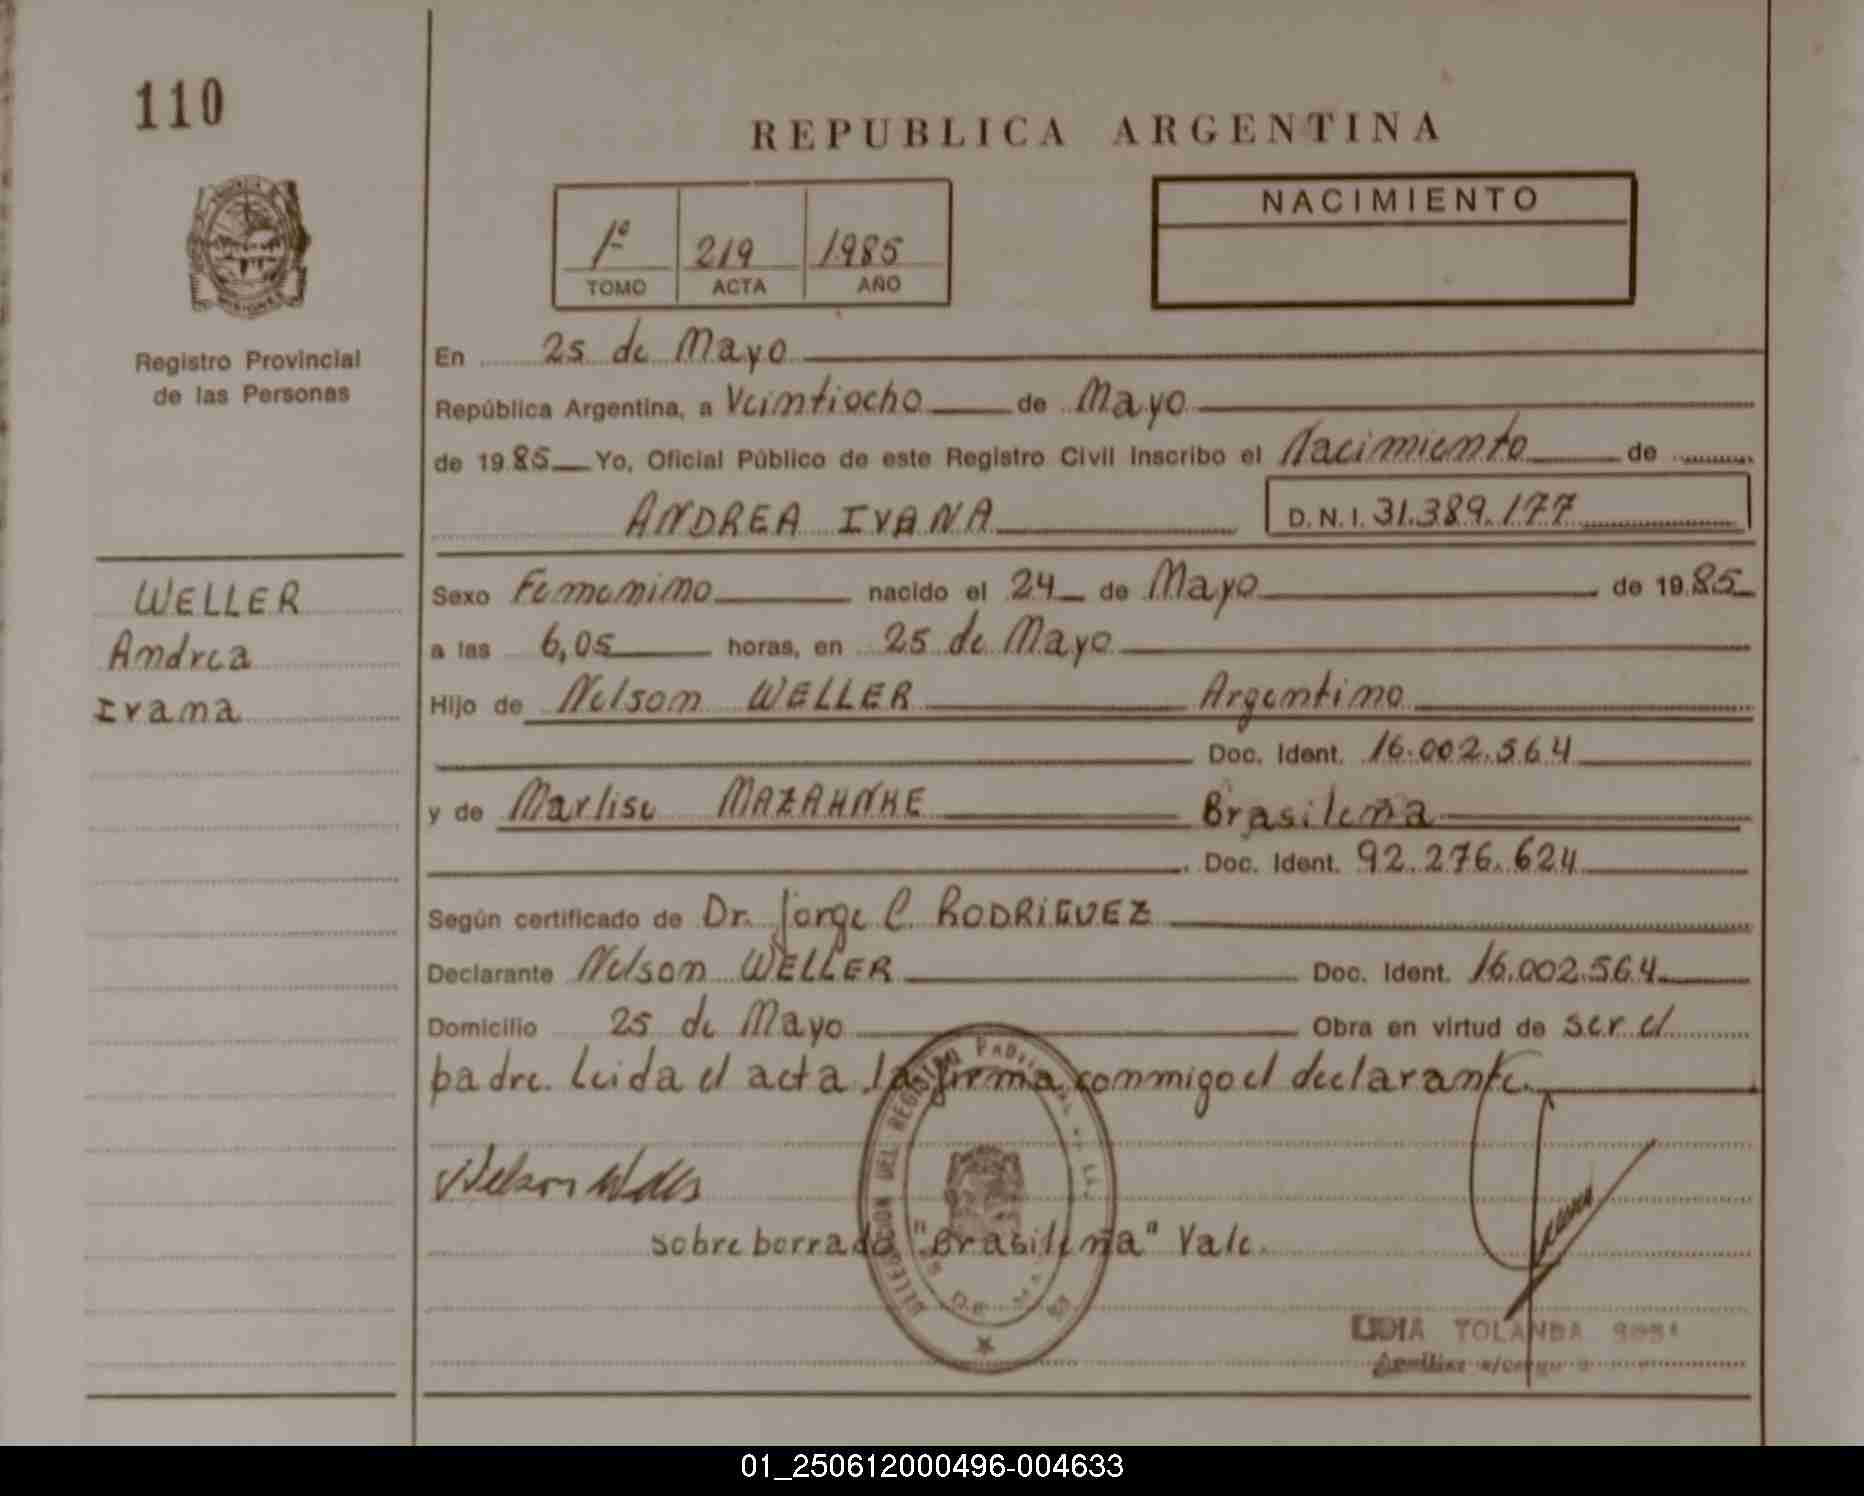 110
REPUBLICA ARGENTINA
NACIMIENTO
1º 219 1985
TOMO ACTA AÑO
Registro Provincial
de las Personas
En 25 de Mayo
República Argentina, a Veintiocho de Mayo
de 1985 Yo, Oficial Público de este Registro Civil inscribo el Nacimiento de
ANDREA IVANA D.N.I. 31.389.177
WELLER
Andrea
Ivana
Sexo Femenino nacido el 24 de Mayo de 1985
a las 6,05 horas, en 25 de Mayo
Hijo de Nelson WELLER Argentino
Doc. Ident. 16.002.564
y de Marlise MAZAHNKE Brasileña
Doc. Ident. 92.276.624
Según certificado de Dr. Jorge C. RODRIGUEZ
Declarante Nelson WELLER Doc. Ident. 16.002.564
Domicilio 25 de Mayo Obra en virtud de ser el
padre. Leida el acta la firma conmigo el declarante.
Nelson Weller
sobre borrado "Brasileña" Vale.
DELEGACION DEL REGISTRO
LIDIA YOLANDA
01_250612000496-004633